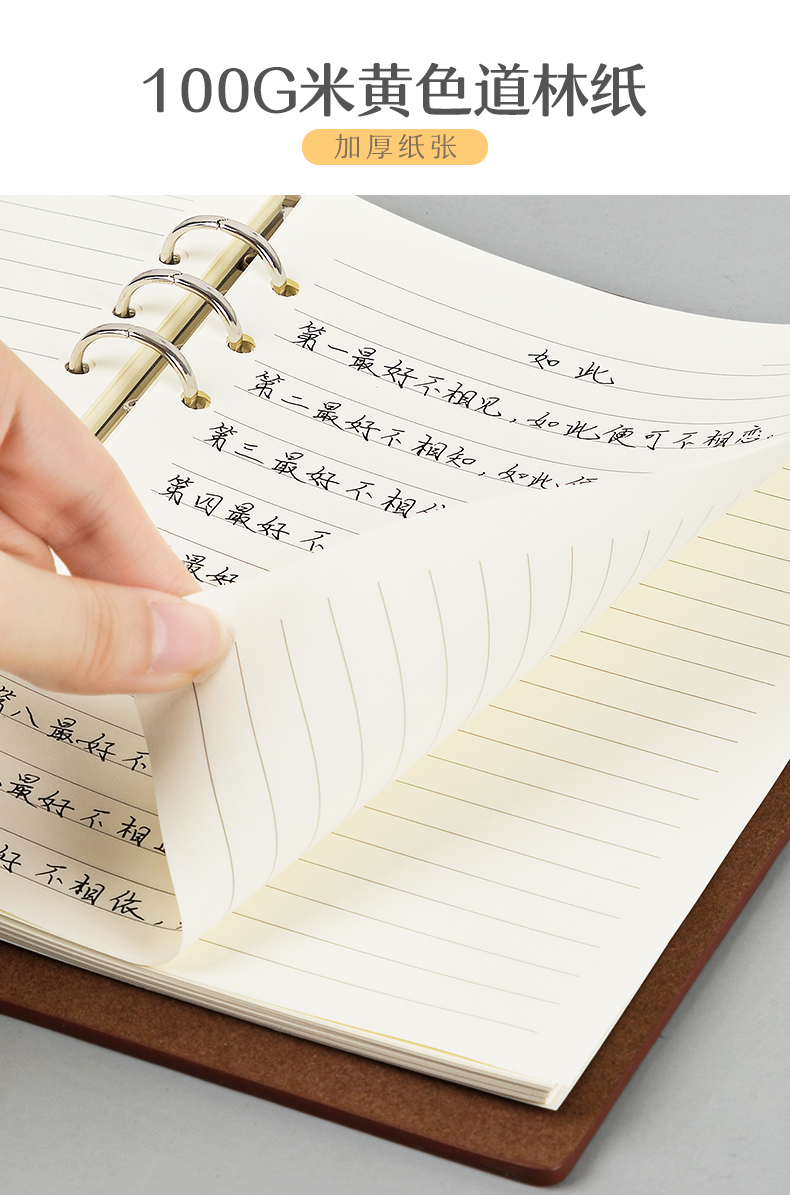 100G米黄色道林纸
加厚纸张
如此
第一最好不相见，如此便可不相恋。
第二最好不相知，如此
第三最好不相
第四最好不
最好
第八最好不
最好不相
好不相依，